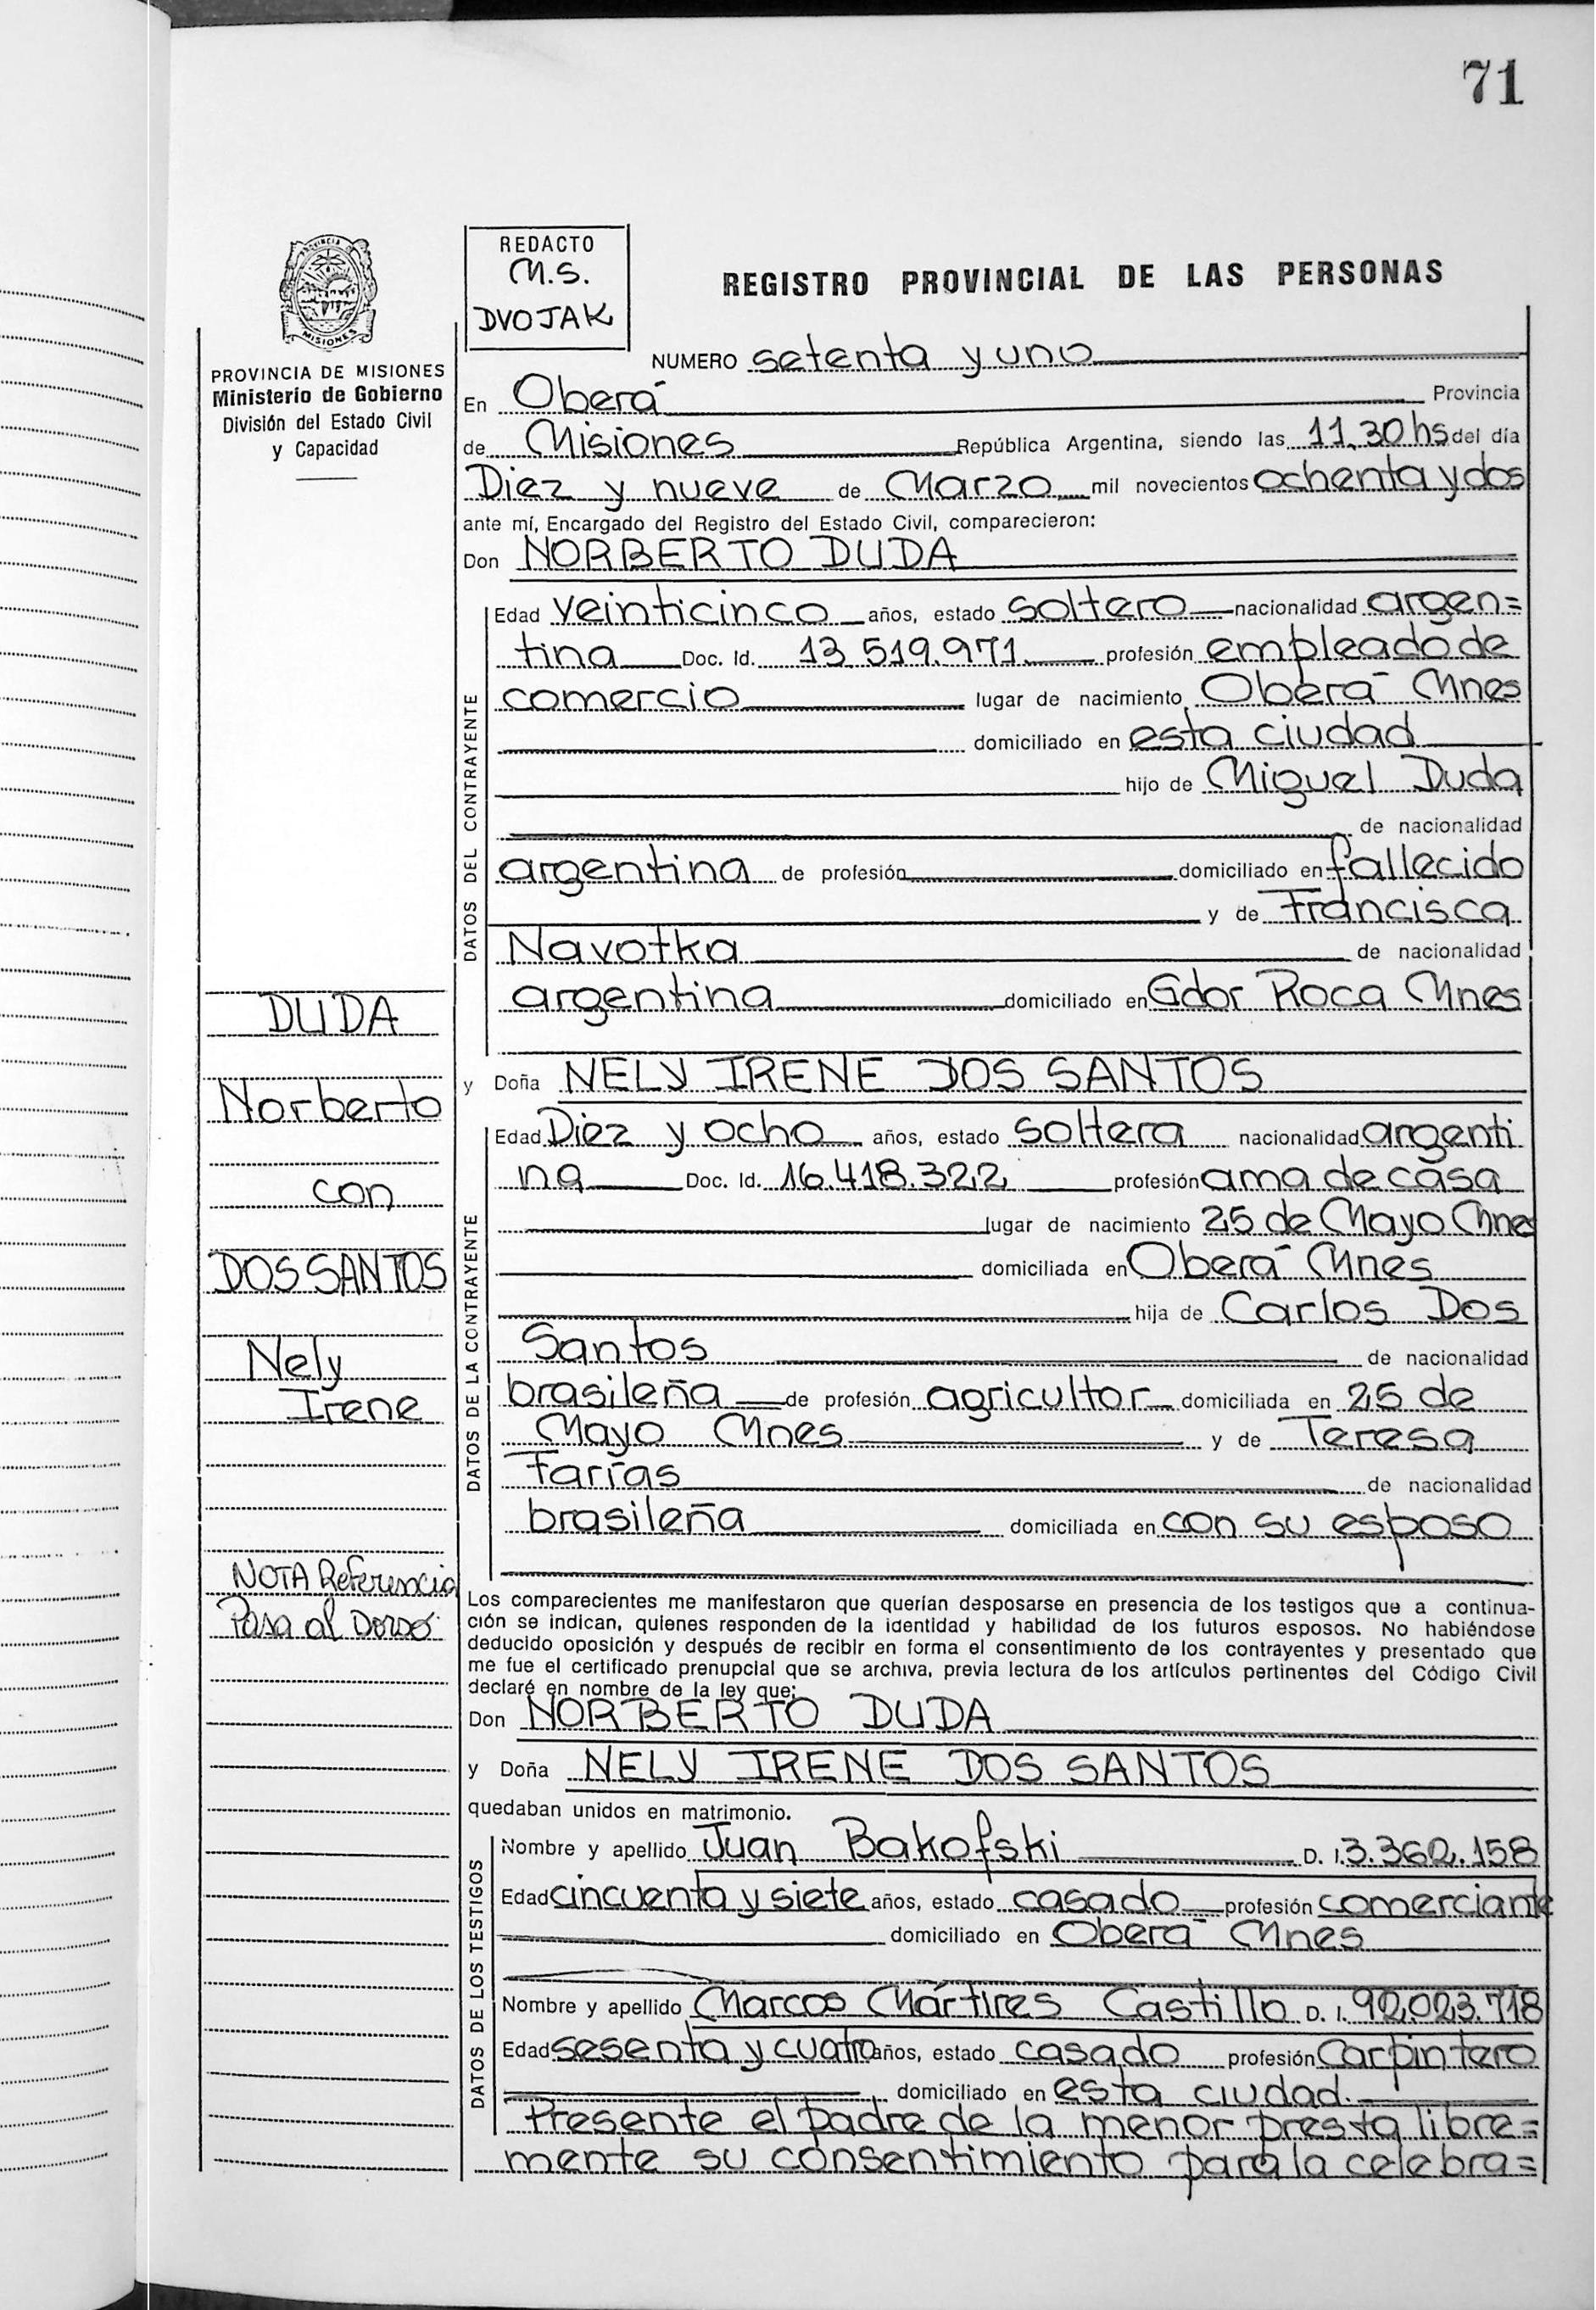 71
PROVINCIA DE
MISIONES
PROVINCIA DE MISIONES
Ministerio de Gobierno
División del Estado Civil
y Capacidad
REDACTO
M.S.
DVOJAK
REGISTRO PROVINCIAL DE LAS PERSONAS
NUMERO setenta y uno
En Oberá Provincia
de Misiones República Argentina, siendo las 11,30 hs del día
Diez y nueve de Marzo mil novecientos ochenta y dos
ante mí, Encargado del Registro del Estado Civil, comparecieron:
Don NORBERTO DUDA
DATOS DEL CONTRAYENTE
Edad veinticinco años, estado soltero nacionalidad argen=
tina Doc. Id. 13.519.971 profesión empleado de
comercio lugar de nacimiento Oberá Mnes
domiciliado en esta ciudad
hijo de Miguel Duda
de nacionalidad
argentina de profesión domiciliado en fallecido
y de Francisca
Navotka de nacionalidad
argentina domiciliado en Gdor Roca Mnes
y Doña NELY IRENE DOS SANTOS
DATOS DE LA CONTRAYENTE
Edad Diez y ocho años, estado soltera nacionalidad argenti
na Doc. Id. 16.418.322 profesión ama de casa
lugar de nacimiento 25 de Mayo Mnes
domiciliada en Oberá Mnes
hija de Carlos Dos
Santos de nacionalidad
brasileña de profesión agricultor domiciliada en 25 de
Mayo Mnes y de Teresa
Farías de nacionalidad
brasileña domiciliada en con su esposo
DUDA
Norberto
con
DOS SANTOS
Nely
Irene
NOTA Referencia
Pasa al Dorso
Los comparecientes me manifestaron que querían desposarse en presencia de los testigos que a continua-
ción se indican, quienes responden de la identidad y habilidad de los futuros esposos. No habiéndose
deducido oposición y después de recibir en forma el consentimiento de los contrayentes y presentado que
me fue el certificado prenupcial que se archiva, previa lectura de los artículos pertinentes del Código Civil
declaré en nombre de la ley que:
Don NORBERTO DUDA
y Doña NELY IRENE DOS SANTOS
quedaban unidos en matrimonio.
DATOS DE LOS TESTIGOS
Nombre y apellido Juan Bakofski D. I. 3.362.158
Edad cincuenta y siete años, estado casado profesión comerciante
domiciliado en Oberá Mnes
Nombre y apellido Marcos Mártires Castillo D. I. 92.023.718
Edad sesenta y cuatro años, estado casado profesión Carpintero
domiciliado en esta ciudad.
Presente el padre de la menor presta libre=
mente su consentimiento para la celebra=